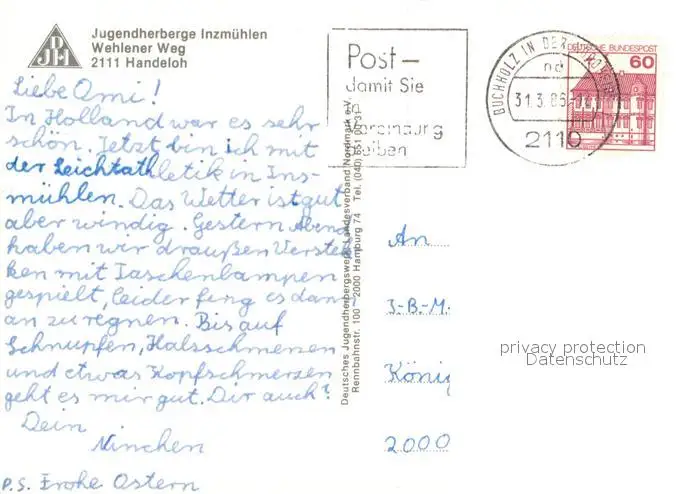 DJH
Jugendherberge Inzmühlen
Wehlener Weg
2111 Handeloh
Liebe Omi!
In Holland war es sehr
schön. Jetzt bin ich mit
der Leichtathletik in Ins-
mühlen. Das Wetter ist gut
aber windig. Gestern Abend
haben wir draußen Verstek-
ken mit Taschenlampen
gespielt, leider fing es dann
an zu regnen. Bis auf
Schnupfen, Halsschmerzen
und etwas Kopfschmerzen
geht es mir gut. Dir auch?
Dein
Ninchen
P.S. Frohe Ostern
Deutsches Jugendherbergswerk, Landesverband Nordmark e.V.
Rennbahnstr. 100 · 2000 Hamburg 74 Tel. (040)
Post–
damit Sie
in
Verbindung
bleiben
BUCHHOLZ IN DER NORDHEIDE
nd
31.3.86
2110
DEUTSCHE BUNDESPOST
60
An
J-B-M-
König
2000
privacy protection
Datenschutz